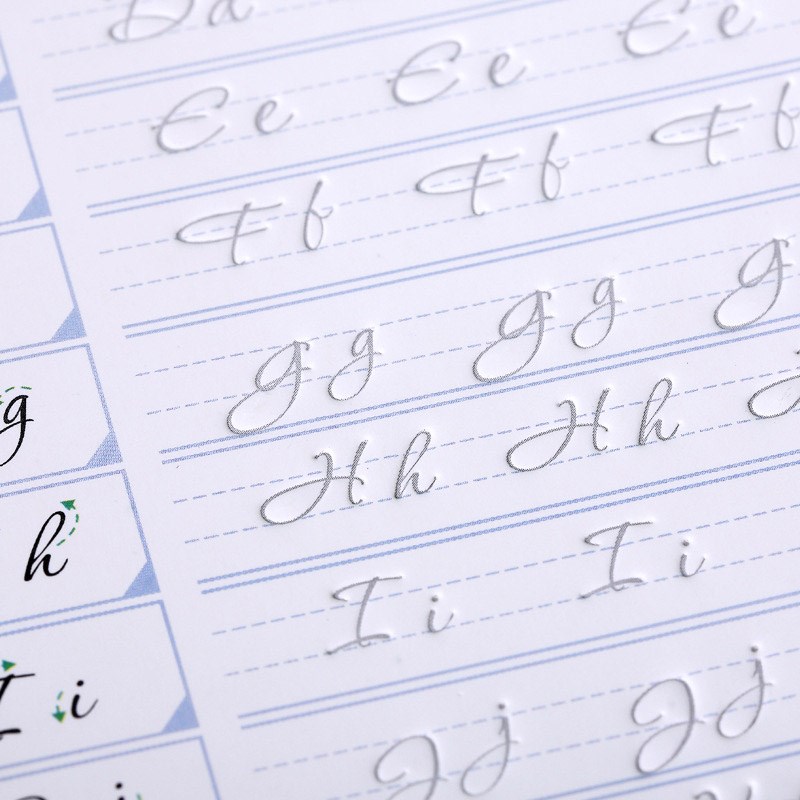 Dd
Ee Ee Ee
Ff Ff Ff
g Gg Gg G
h Hh Hh H
I i Ii Ii
j Jj Jj